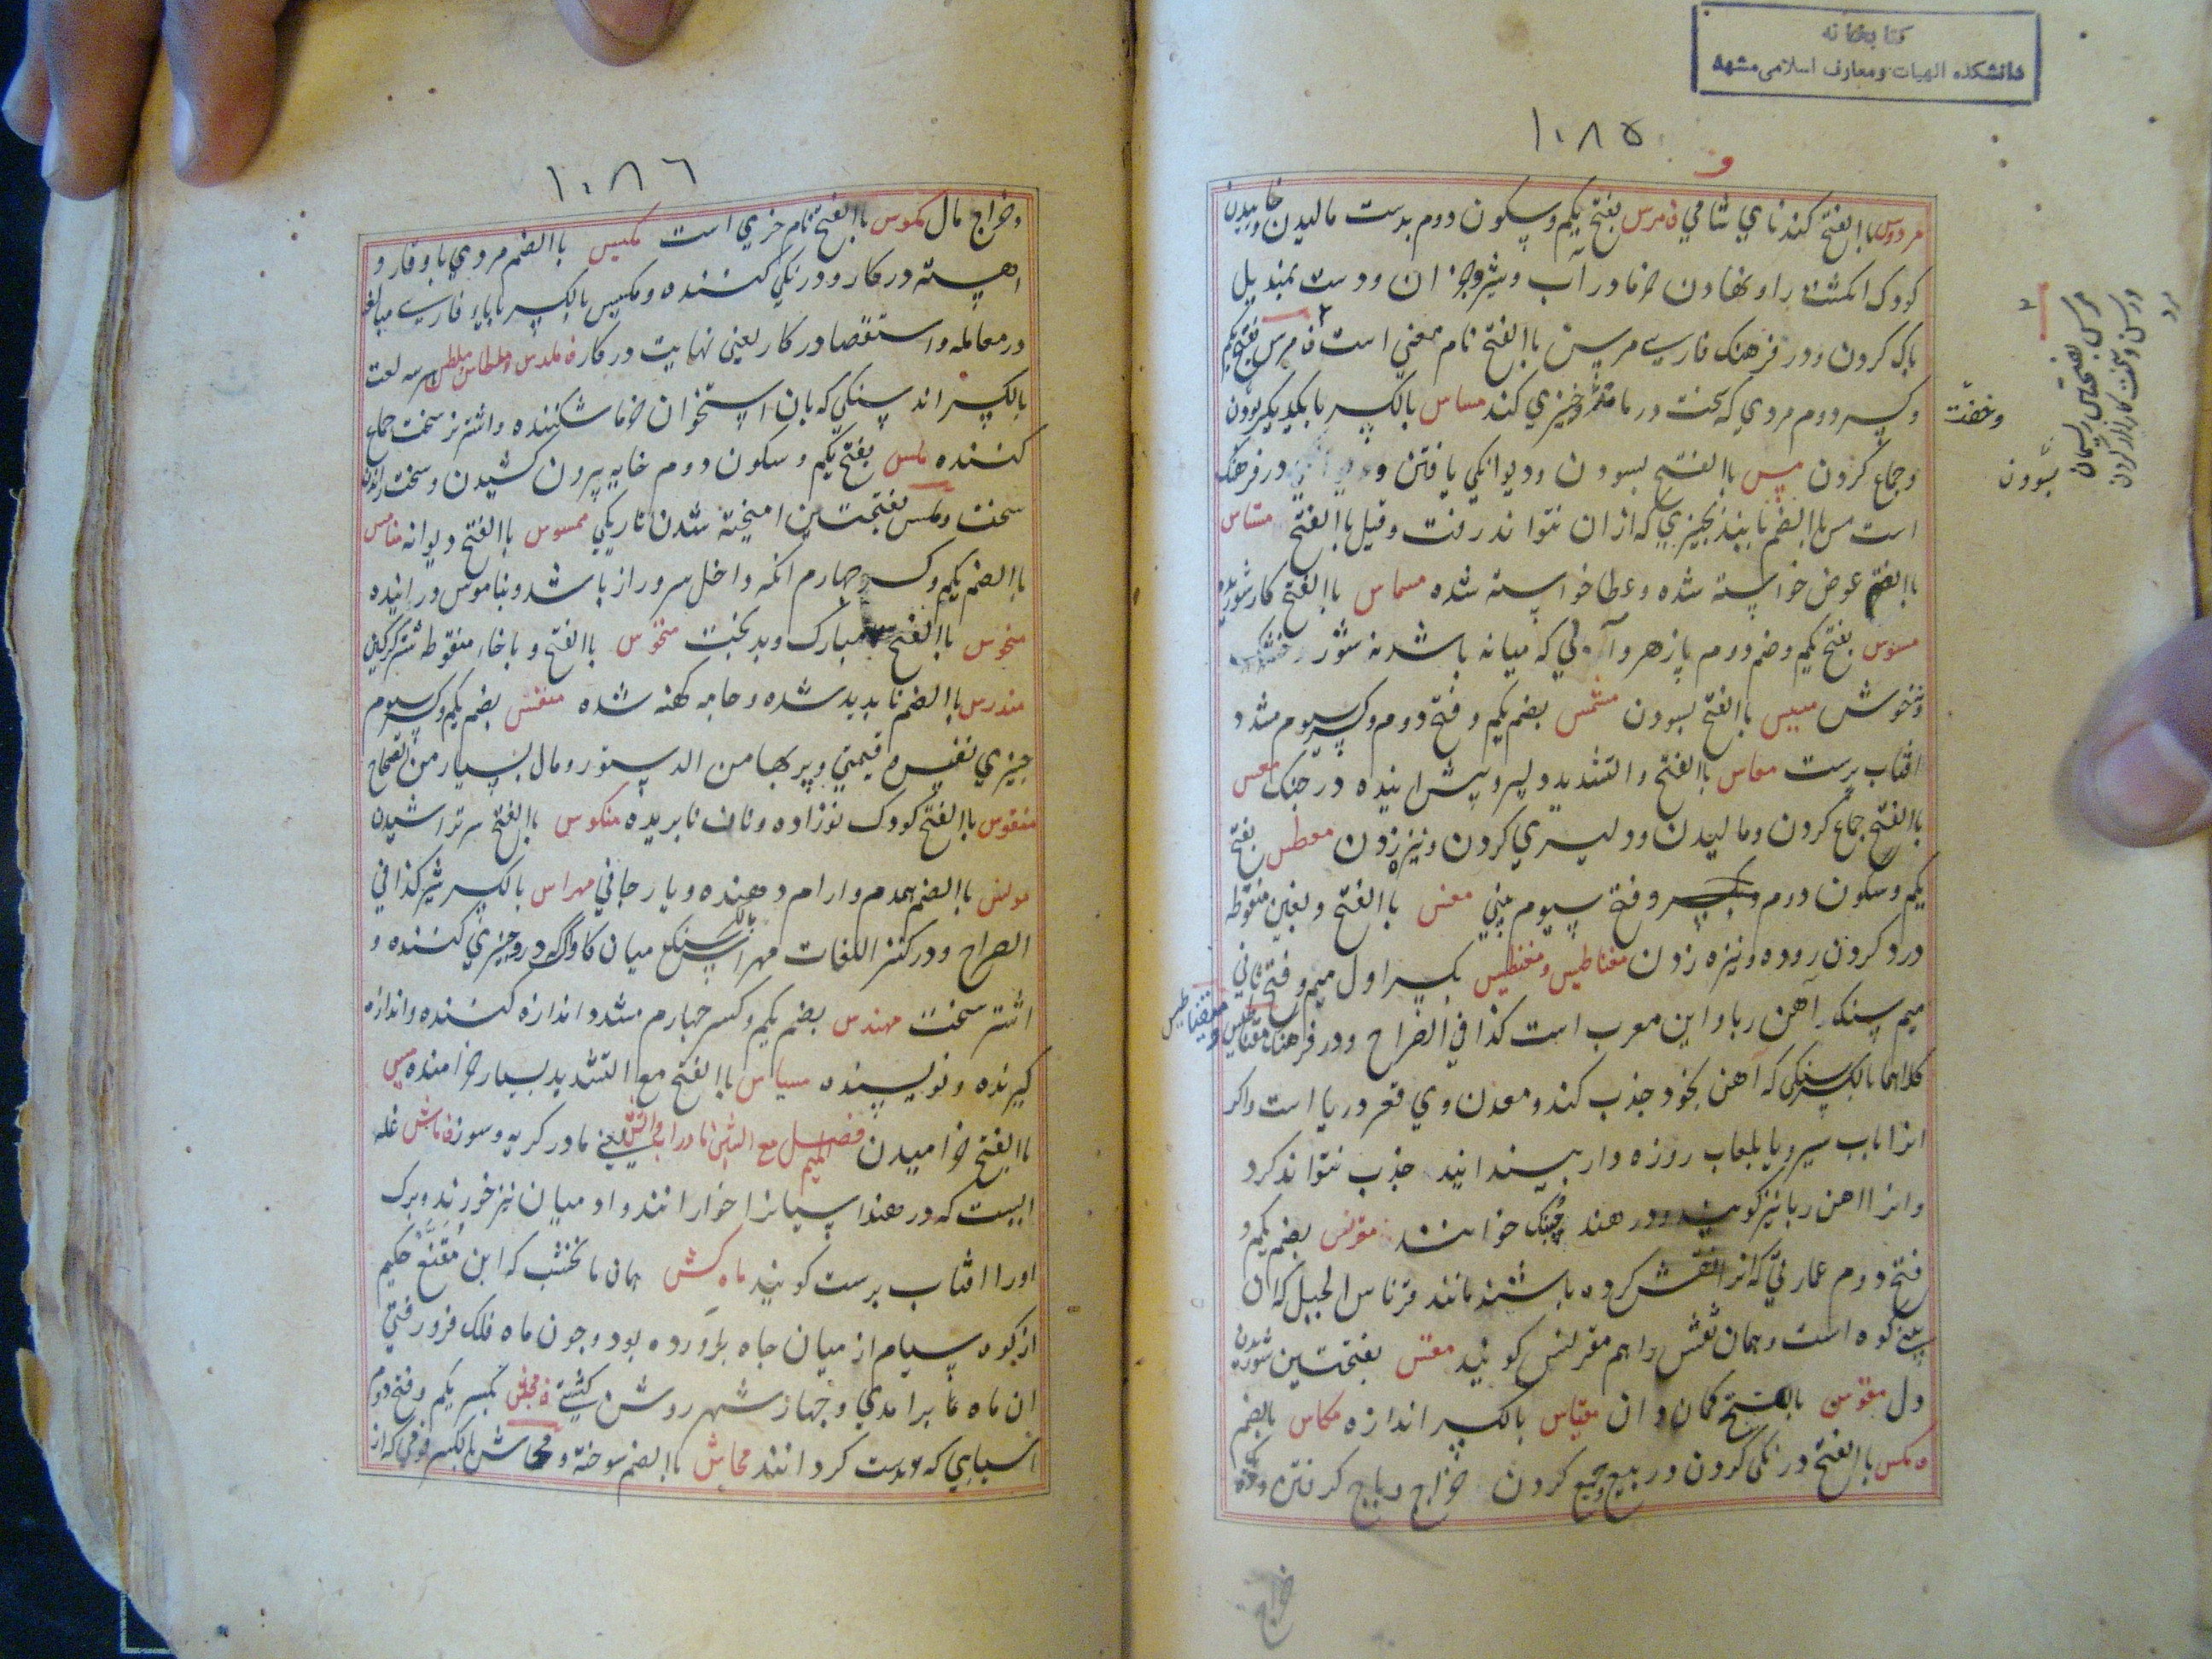 کتابخانه
دانشکده الهیات ومعارف اسلامی مشهد
۱۰۸۵
مردوس باالفتح کندنای شامي ف مرس بفتح یکم وسکون دوم بدست مالیدن وخاییدن
کودک انکشت را ونهادن خرما در آب وشیر وجز ان ودست بمندیل
پاک کردن ودر فرهنک فارسے مرس باالفتح نام مغی است ف مرس بفتح یکم
وکسر دوم مردي که سخت در ما چیزي کند مساس بالکسر با یکدیکر بودن
وجماع کردن مس باالفتح بسودن ودیوانکي یافتن در فرهنک
است مس باالضم پابند بچیزي که ازان نتواند رفت وقیل باالفتح مستاس
باالضم عوض خواسته شده وعطا خواسته شده مسماس باالفتح کار شوریده
مسوس بفتح یکم وضم دوم پازهر وآبي که میانه باشد نه شور
ونه خوش مسیس باالفتح بسودن مشمس بضم یکم وفتح دوم وکسر سیوم مشدد
افتاب پرست معاس باالفتح والتشدید دلیر وپیش اینده در جنک معس
باالفتح جماع کردن ومالیدن ودلیري کردن ونیزه زدن معطس بفتح
یکم وسکون دوم وکسر وفتح سیوم بیني مغس باالفتح وبغین منقوطه
درد کردن روده ونیزه زدن مغناطیس ومغنطیس بکسر اول میم وفتح ثاني
میم سنک آهن ربا واین معرب است کذا في الصراح ودر فرهنک مقناطیس ومقیناطیس
کلاهما بالکسر سنکی که آهن بخود جذب کند ومعدن وي قعر دریا است واکر
انرا باب سیر ویا بلعاب روزه دار بیندایند جذب نتواند کرد
وانرا اهن ربا نیز کویند ودر هند چنبک خوانند مقرنس بضم یکم و
فتح دوم عمارتي که انرا نقش کرده باشند مانند قرناس الجبل که ان
بیني کوه است وهمان نقش را هم مقرنس کویند مقس بفتحتین شوریدن
دل مقوس بالفتح کمان دان مقیاس بالکسر اندازه مکاس بالضم
ه مکس باالفتح درنکی کردن در بیع وجمع کردن خراج وباج کرفتن
خراج
وخفت
بسودن
مرس بفتحتین ریسمان
ورسن وسخت کارزار کردن
مرد
۱۰۸۶
وخراج مال کموس باالفتح نام خري است مکیس باالضم مردي باوقار و
اهسته در کار ودرنکي کننده ومکیس بالکسر بابای فارسے مبالغه
در معامله واستقصا در کار یعنی نهایت در کار ف ملدس وملطاس وملطس هر سه لغت
بالکسر اند سنکي که بان استخوان خرما شکننده واشتر نر سخت جماع
کننده ملس بفتح یکم وسکون دوم خایه بیرون کشیدن وسخت راندن
سخت وملس بفتحتین امیخته شدن تاریکي ممسوس باالفتح دیوانه منامس
باالضم یکم وکسر چهارم انکه داخل سر وراز باشد وبناموس در اینده
منحوس باالفتح مبارک وبدبخت منخوس باالفتح وباخاء منقوطه شتر کرکین
مندرس باالضم ناپدید شده وجامه کهنه شده منفس بضم یکم وکسر سیوم
چیزي نفیس وقیمتي وپر بها من الدستور ومال بسیار من الصحاح
منفوس باالفتح کودک نوزاده وناف نابریده منکوس باالفتح سر تراشیدن
مونس باالضم همدم وارام دهنده ویار جاني مهراس بالکسر شیر کذا في
الصراح ودر کنز اللغات مهراس بالکسر سنکي میان کاواک که درو چیزي کننده و
اشتر سخت مهندس بضم یکم وکسر چهارم مشدد اندازه کننده واندازه
کیرنده ونویسنده میاس باالفتح مع التشدید بسیار خرامنده میس
باالفتح خرامیدن فصل المیم مع الشین مادراب وماشن یعني مادر کریه وسوز ف ماش غله
ایست که در هند اسپانرا خورانند وادمیان نیز خورند وبرک
اورا افتاب پرست کویند ماه کش همان مانخشب که ابن مقنع حکیم
از کوه سیام از میان چاه براورده بود وچون ماه فلک فرو رفتي
ان ماه ما برامدي وچهار شهر روشن کشتے ف محش بکسر یکم وفتح دوم
اسیاي که بدست کردانند محاش باالضم سوخته ومحاش بالکسر قومي که از